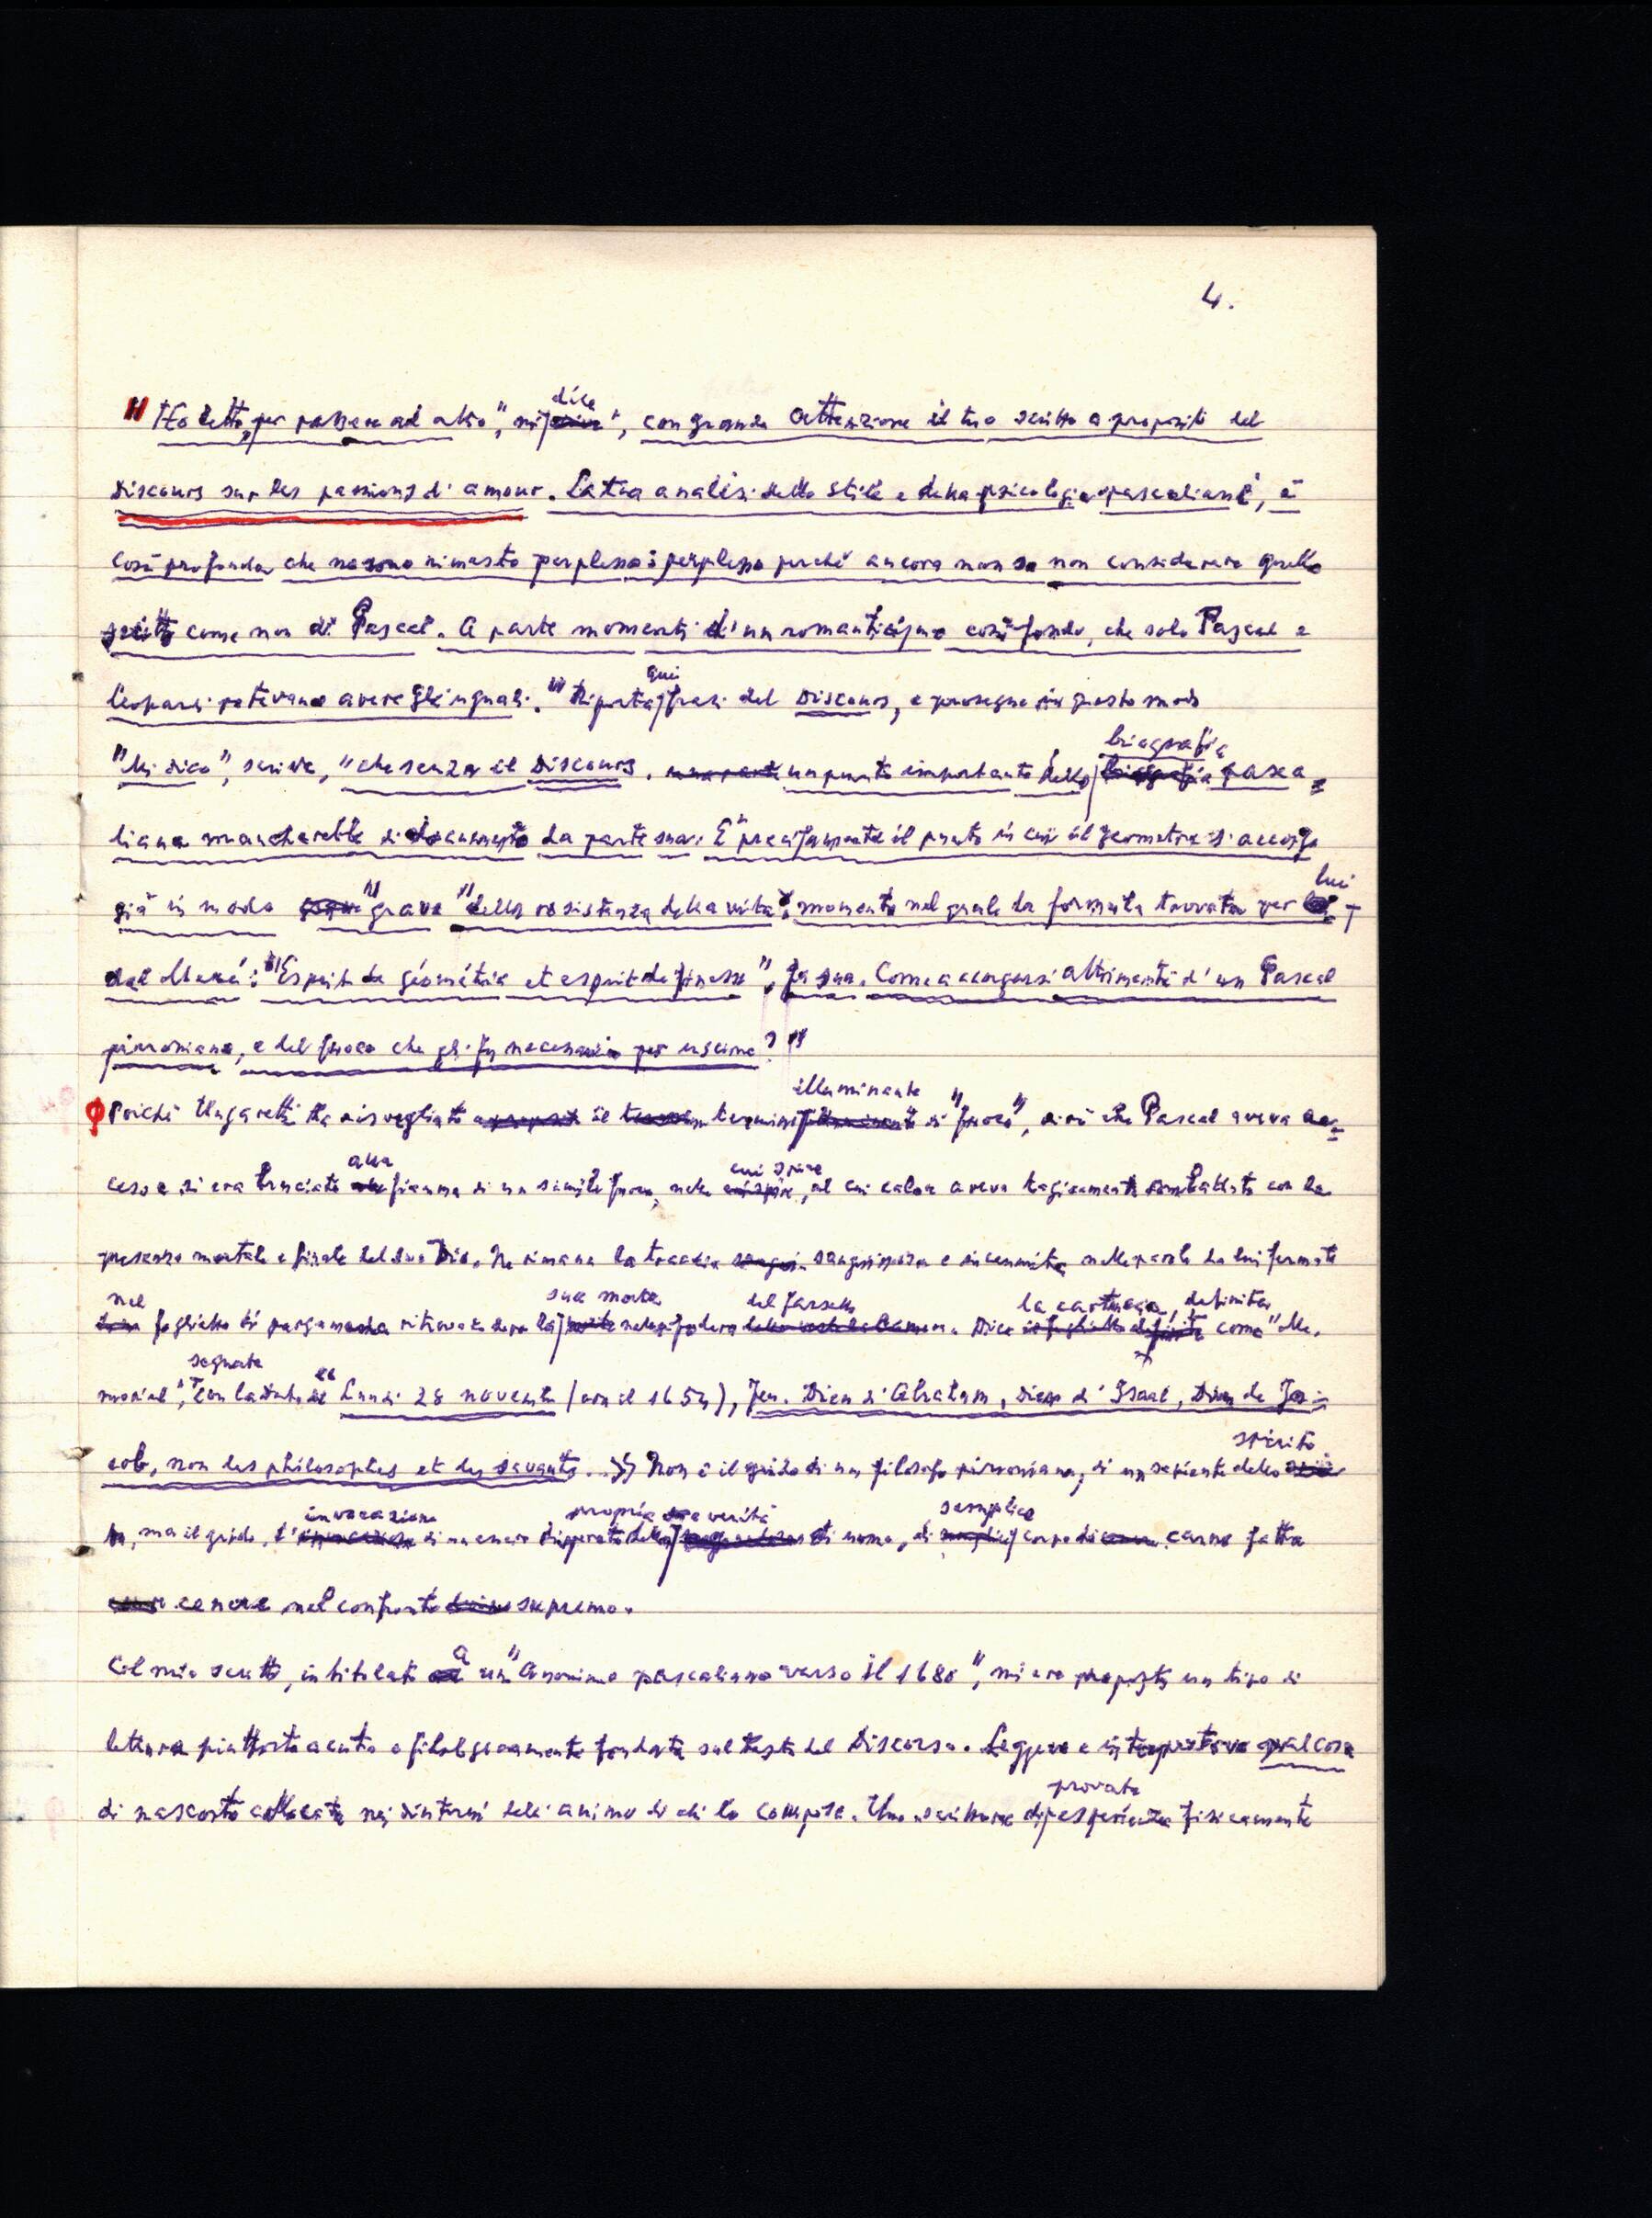 4.
"Ho letto, per passare ad altro", mi dice, "con grande attenzione il tuo scritto a proposito del
Discours sur les passions d'amour. La tua analisi dello stile e della psicologia pascaliane, è
così profonda che ne sono rimasto perplesso: perplesso perché ancora non so non considerare quello
scritto come non di Pascal. A parte momenti d'un romanticismo così fondo, che solo Pascal e
Leopardi potevano avere gli uguali." Riporta qui frasi del Discours, e prosegue in questo modo
"Mi dico", scrive, "che senza il Discours, un punto importante della biografia pasca=
liana mancherebbe di documento da parte sua. È precisamente il punto in cui il geometra s'accorge
già in modo "grave" della resistenza della vita, momento nel quale la formula trovata per lui
dal Méré: "Esprit de géométrie et esprit de finesse", fa sua. Come accorgersi altrimenti d'un Pascal
pirroniano, e del fuoco che gli fu necessario per uscirne?"
Poiché Ungaretti ha risvegliato il termine illuminante di "fuoco", dirò che Pascal aveva ac=
ceso e si era bruciato alla fiamma di un simile fuoco, nelle cui spire, al cui calore aveva tragicamente combattuto con la
presenza mortale e finale del suo Dio. Ne rimane la traccia sanguinosa e incenerita nelle parole da lui fermate
nel foglietto di pergamena ritrovato dopo la sua morte nella fodera del farsetto. Dice la cartuccia, definita come "Me=
morial", segnata con la data el Lundi 28 novembre (era il 1654), Feu. Dieu d'Abraham, Dieu d'Isaac, Dieu de Ja=
cob, non des philosophes et des savants. Non è il grido di un filosofo pirroniano, di un sapiente dello spirito
ma il grido, l'invocazione di un cuore disperato della propria verità di uomo, di semplice corpo di carne fatta
cenere nel confronto supremo.
Col mio scritto, intitolato a un "Anonimo pascaliano verso il 1680", mi ero proposto un tipo di
lettura piuttosto acuta e filologicamente fondata sul testo del Discorso. Leggevo e interpretavo qualcosa
di nascosto collocato nei dintorni dell'animo di chi lo compose. Uno scrittore di provata esperienza fisicamente